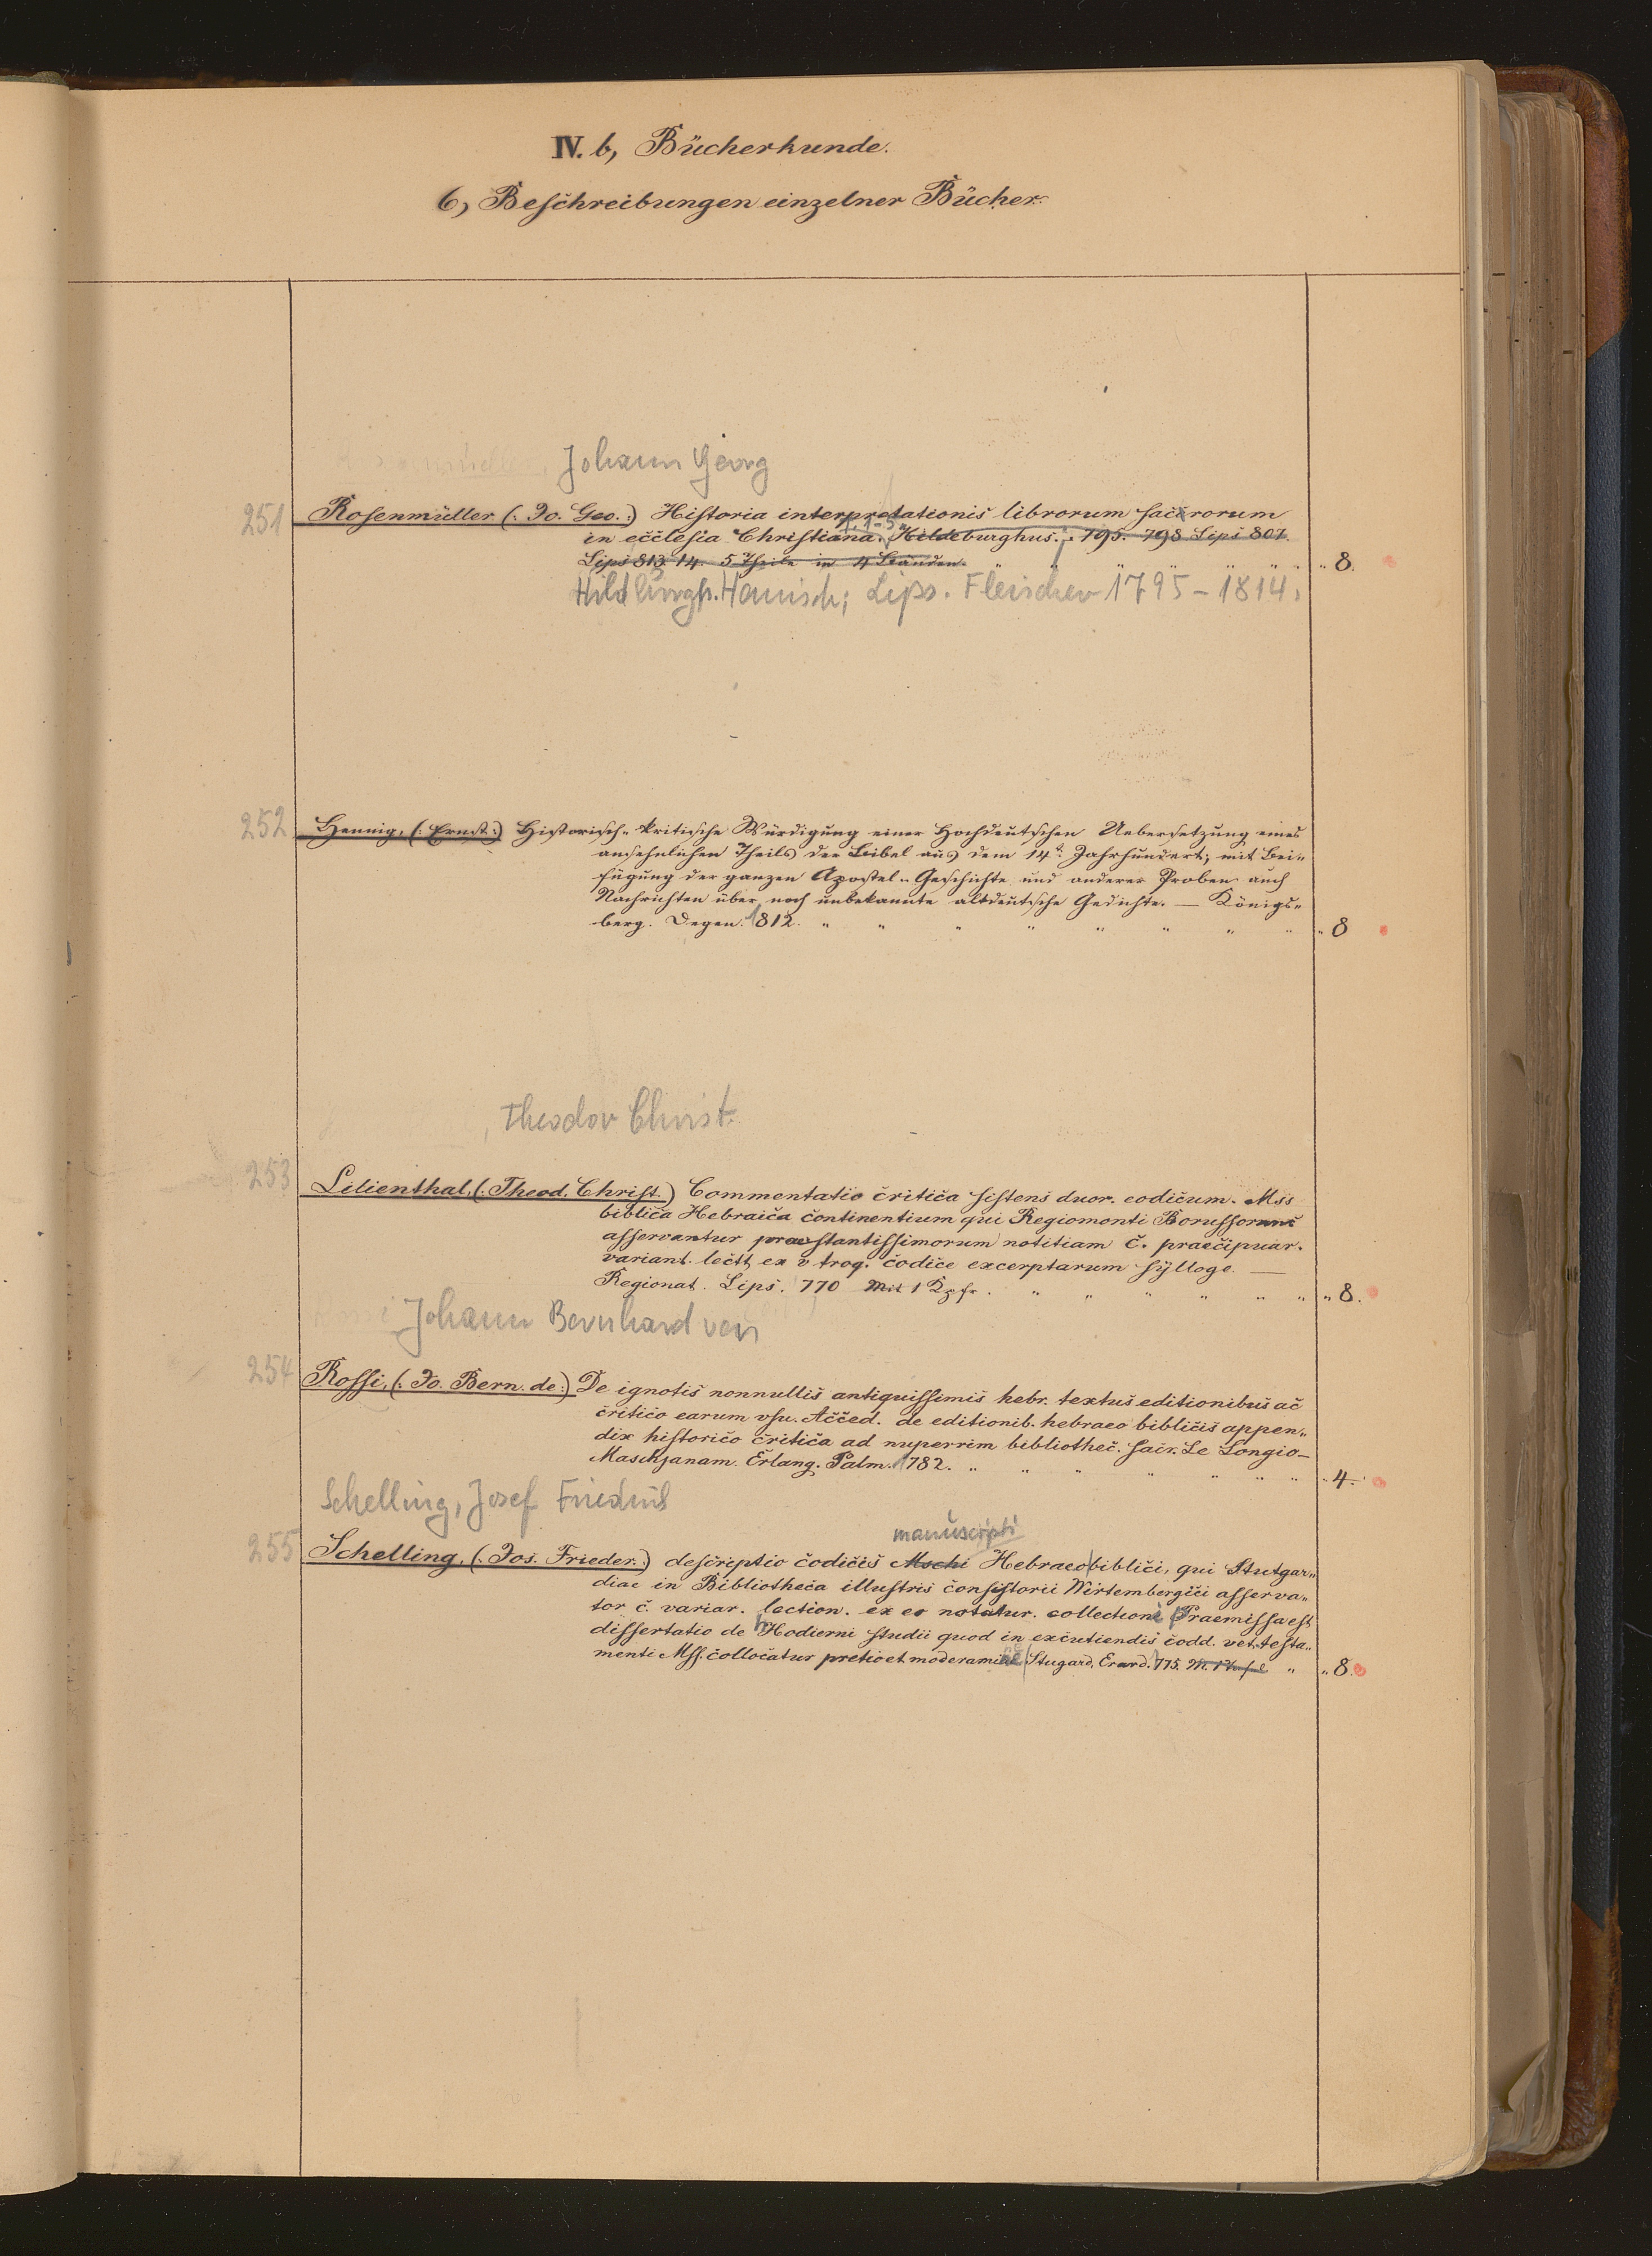 IV. b, Bücherkunde.
6, Beschreibungen einzelner Bücher.
Johann Georg
251 Rosenmüller (: Jo. Geo. :) Historia interpretationis librorum sacrorum
T. 1-5.
in ecclesia Christiana. Hildeburghus. 795. 798 Lips 807.
Lips 813. 14. 5 Theile in 4 Bänden. " " " " " " " 8.
Hildburgh. Hanisch; Lips. Fleischer 1795 - 1814.
252 Hennig, (: Ernst :) Historisch-kritische Würdigung einer Hochdeutschen Uebersetzung eines
ansehnlichen Theils der Bibel aus dem 14t. Jahrhundert; mit Bei-
fügung der ganzen Apostel-Geschichte und anderer Proben auch
Nachrichten über noch unbekannte altdeutsche Gedichte. — Königs-
berg. Degen. 1812. " " " " " " " " " 8
Theodor Christ.
253 Lilienthal, (: Theod. Christ. :) Commentatio critica sistens duor. codicum. Mss
biblica Hebraica continentium qui Regiomonti Borussorum
asservantur praestantissimorum notitiam c. praecipuar.
variant. lectt, ex v trog. codice excerptarum sylloge —
Regionat. Lips. 770 Mit 1 Kpfr. " " " " " " " 8.
Johann Bernhard von
254 Rossi, (: Jo. Bern. de :) De ignotis nonnullis antiquissimis hebr. textus editionibus ac
critico earum usu. Acced. de editionib. hebraeo biblicis appen-
dix historico critica ad nuperrim bibliothec. sacr. Le Longio-
Maschjanam. Erlang. Palm. 1782. " " " " " " " " 4.
Schelling, Josef Friedrich
manuscripti
255 Schelling, (: Jos. Frieder. :) descriptio codicis Mschi Hebraeo biblici, qui Stutgar-
diae in Bibliotheca illustris consistorii Wirtembergici asserva-
tor c. variar. lection. ex eo notatur. collectione Praemissa est
dissertatio de hodierni studii quod in excutiendis codd. vet. testa-
menti Mss. collocatur pretio et moderamine Stugard, Erard. 1775. " " 8.